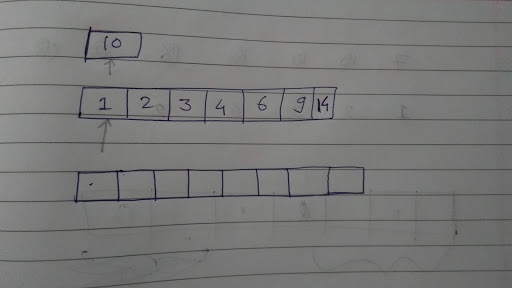 10
1 2 3 4 6 9 14